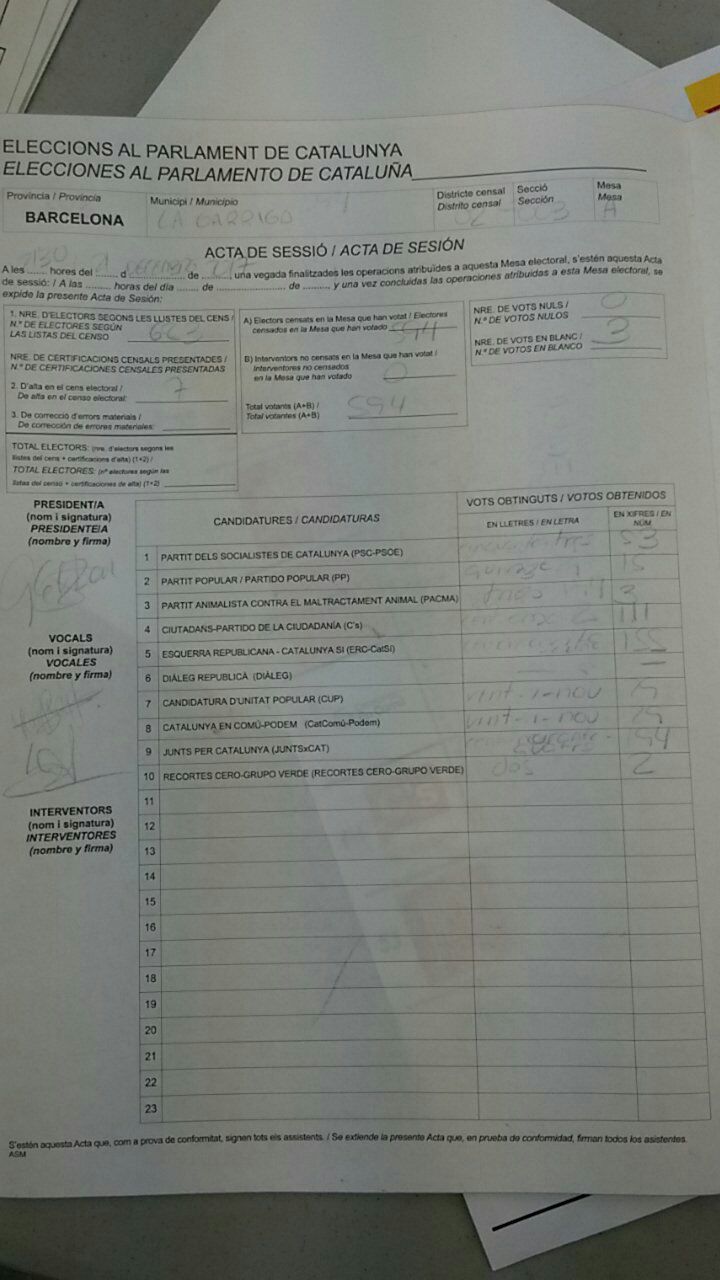 ELECCIONS AL PARLAMENT DE CATALUNYA
ELECCIONES AL PARLAMENTO DE CATALUÑA
Província / Provincia
BARCELONA
Municipi / Municipio
LA GARRIGA
Districte censal
Distrito censal
2
Secció
Sección
003
Mesa
Mesa
A
ACTA DE SESSIÓ / ACTA DE SESIÓN
A les ...... hores del ...... d ............... de ......., una vegada finalitzades les operacions atribuïdes a aquesta Mesa electoral, s'estén aquesta Acta
de sessió: / A las ........ horas del día ....... de ..................... de ........ y una vez concluidas las operaciones atribuidas a esta Mesa electoral, se
expide la presente Acta de Sesión:
1. NRE. D'ELECTORS SEGONS LES LLISTES DEL CENS /
N.º DE ELECTORES SEGÚN
LAS LISTAS DEL CENSO
NRE. DE CERTIFICACIONS CENSALS PRESENTADES /
N.º DE CERTIFICACIONES CENSALES PRESENTADAS
2. D'alta en el cens electoral /
De alta en el censo electoral: 7
3. De correcció d'errors materials /
De corrección de errores materiales:
TOTAL ELECTORS: (nre. d'electors segons les
llistes del cens + certificacions d'alta) (1+2) /
TOTAL ELECTORES: (nº electores según las
listas del censo + certificaciones de alta) (1+2)
A) Electors censats en la Mesa que han votat / Electores
censados en la Mesa que han votado 594
B) Interventors no censats en la Mesa que han votat /
Interventores no censados
en la Mesa que han votado 0
Total votants (A+B) /
Total votantes (A+B) 594
NRE. DE VOTS NULS /
N.º DE VOTOS NULOS 0
NRE. DE VOTS EN BLANC /
N.º DE VOTOS EN BLANCO 3
PRESIDENT/A
(nom i signatura)
PRESIDENTE/A
(nombre y firma)
VOCALS
(nom i signatura)
VOCALES
(nombre y firma)
INTERVENTORS
(nom i signatura)
INTERVENTORES
(nombre y firma)
CANDIDATURES / CANDIDATURAS
VOTS OBTINGUTS / VOTOS OBTENIDOS
EN LLETRES / EN LETRA
EN XIFRES / EN NÚM.
1 PARTIT DELS SOCIALISTES DE CATALUNYA (PSC-PSOE) 53
2 PARTIT POPULAR / PARTIDO POPULAR (PP) 15
3 PARTIT ANIMALISTA CONTRA EL MALTRACTAMENT ANIMAL (PACMA) 3
4 CIUTADANS-PARTIDO DE LA CIUDADANÍA (C's) 111
5 ESQUERRA REPUBLICANA - CATALUNYA SI (ERC-CatSí) 155
6 DIÀLEG REPUBLICÀ (DIÀLEG) —
7 CANDIDATURA D'UNITAT POPULAR (CUP) vint-i-nou
8 CATALUNYA EN COMÚ-PODEM (CatComú-Podem) vint-i-nou 29
9 JUNTS PER CATALUNYA (JUNTSxCAT) 194
10 RECORTES CERO-GRUPO VERDE (RECORTES CERO-GRUPO VERDE) dos 2
11
12
13
14
15
16
17
18
19
20
21
22
23
S'estén aquesta Acta que, com a prova de conformitat, signen tots els assistents. / Se extiende la presente Acta que, en prueba de conformidad, firman todos los asistentes.
ASM